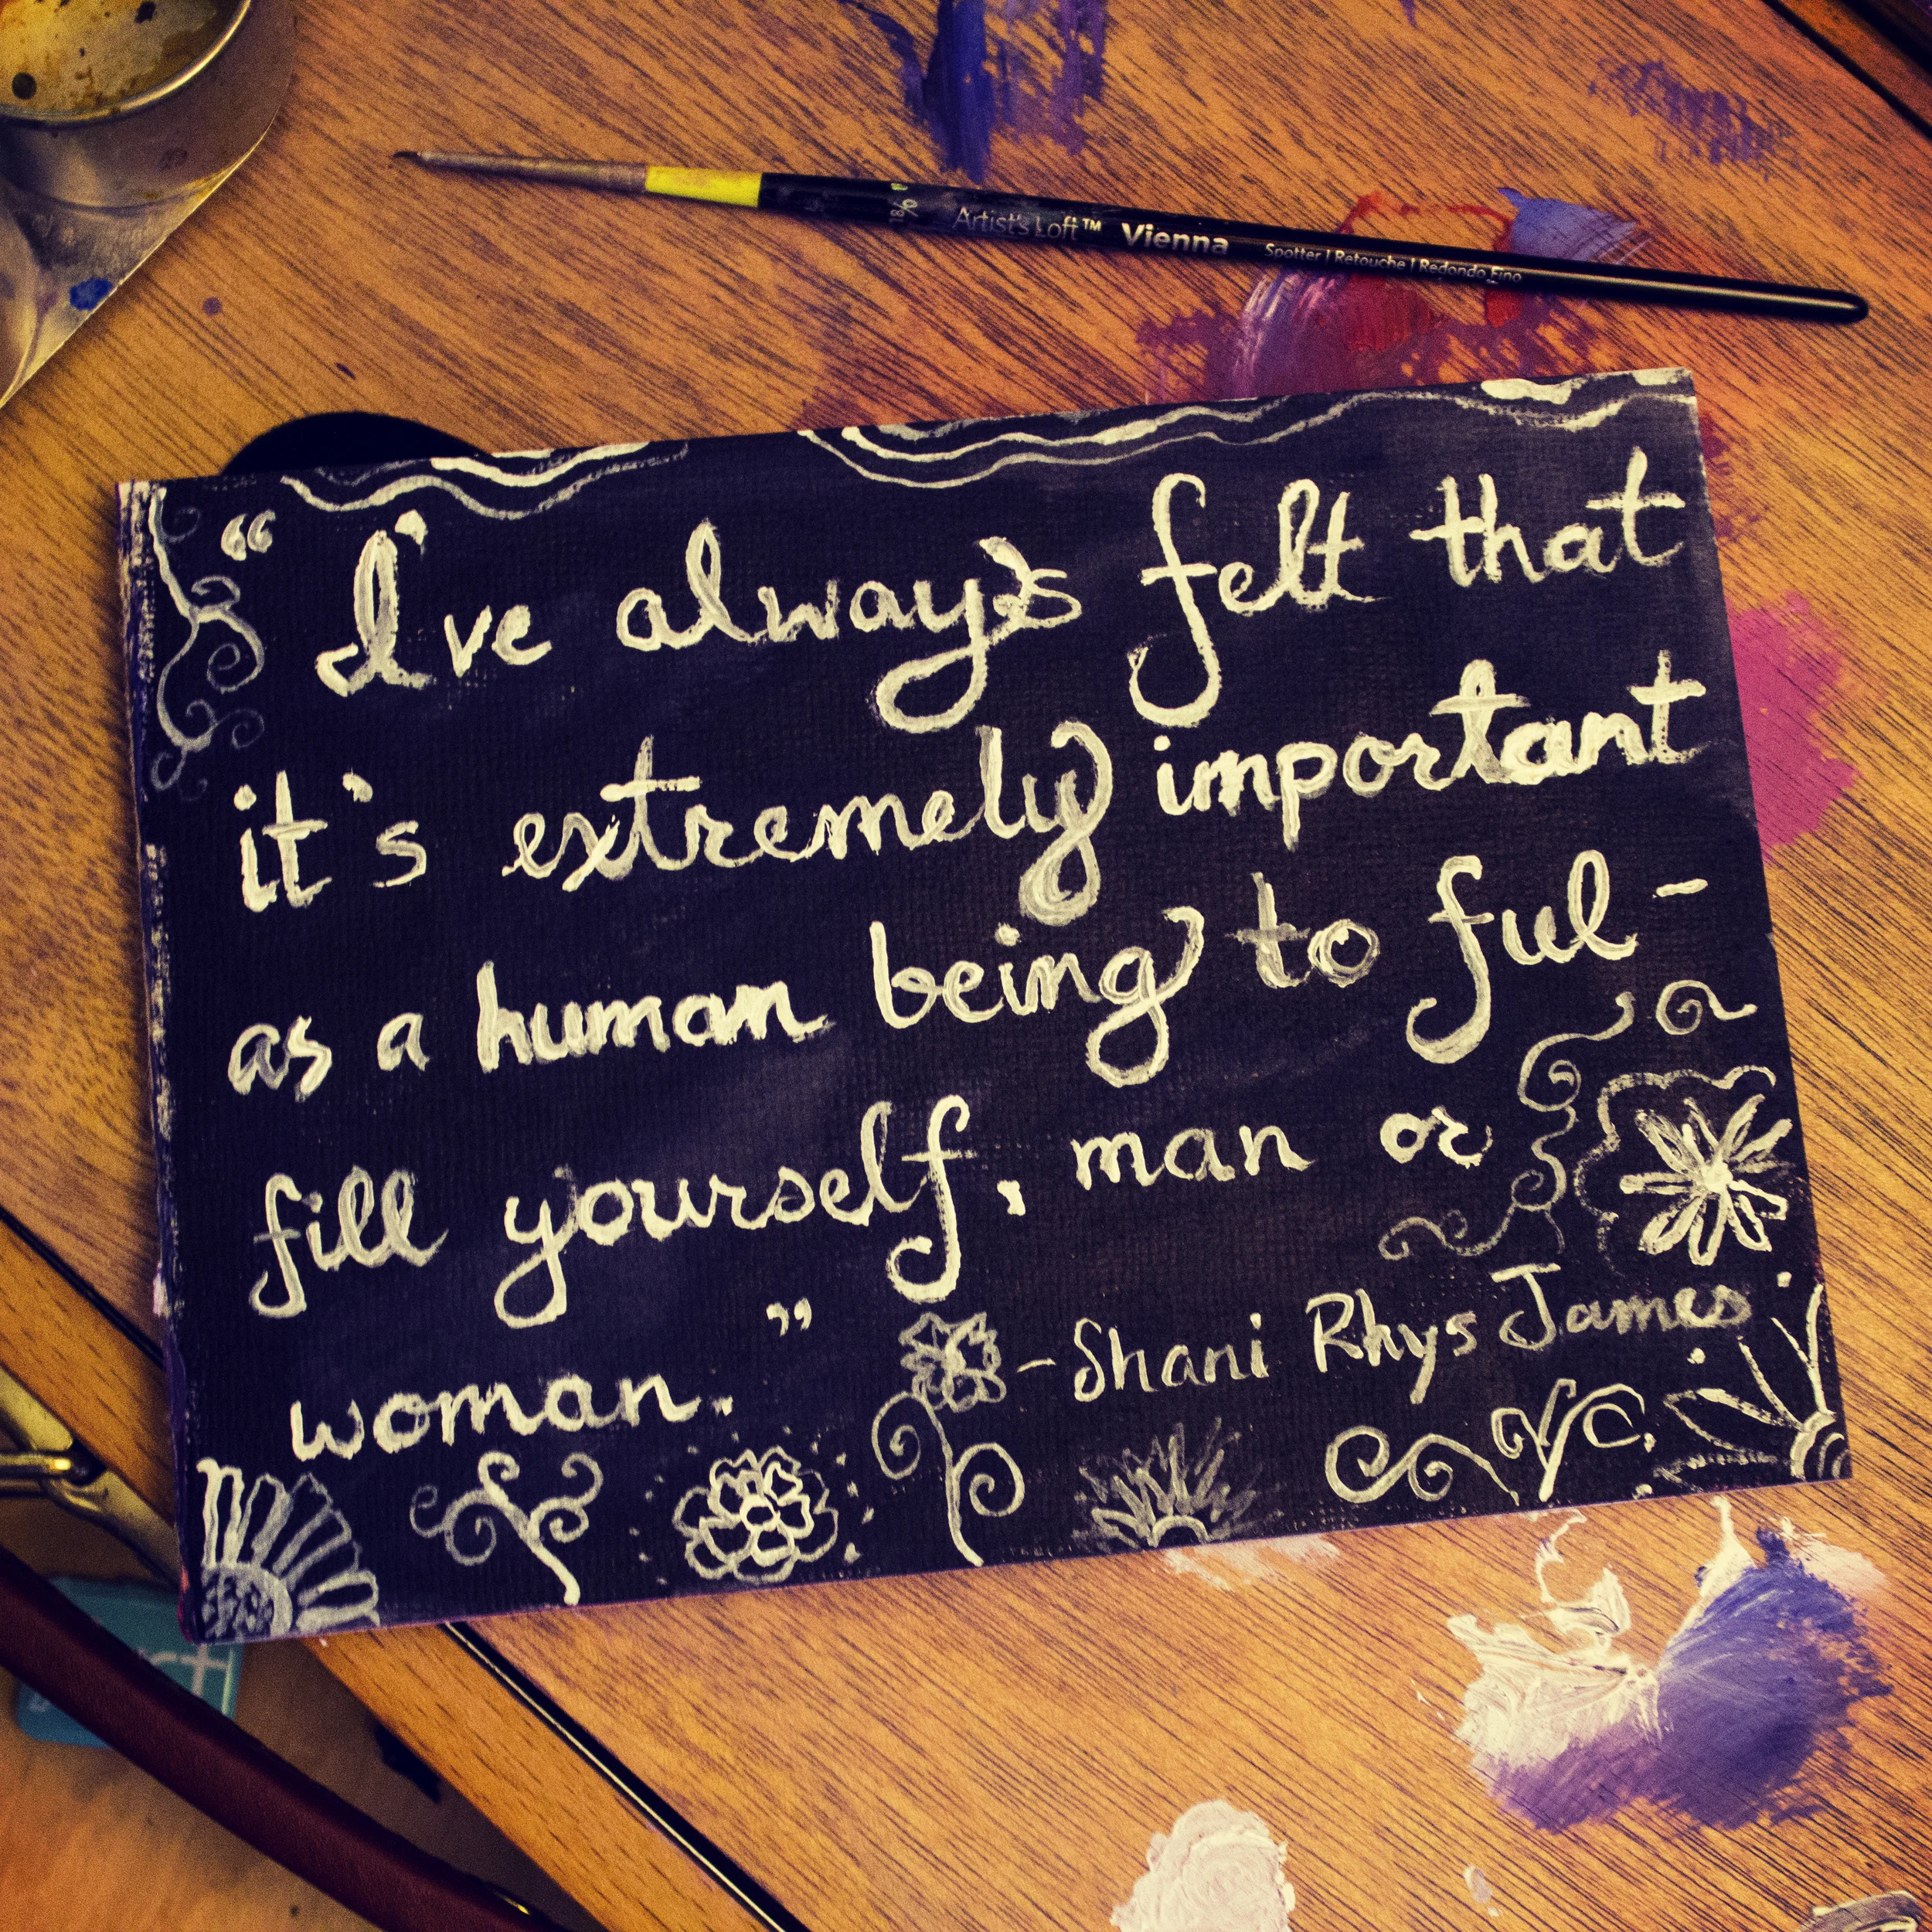 18/0 Artist's Loft™ Vienna Spotter | Retouche | Redondo Fino
“ I've always felt that
it's extremely important
as a human being to ful-
fill yourself, man or
woman. ”
- Shani Rhys James